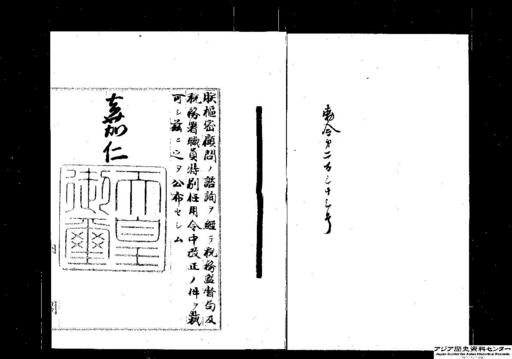 勅令第二百三十三号
朕樞密顧問ノ諮詢ヲ經テ税務監督局及
税務署職員特別任用令中改正ノ件ヲ裁
可シ茲ニ之ヲ公布セシム
嘉仁
天皇御璽
アジア歴史資料センター
Japan Center for Asian Historical Records